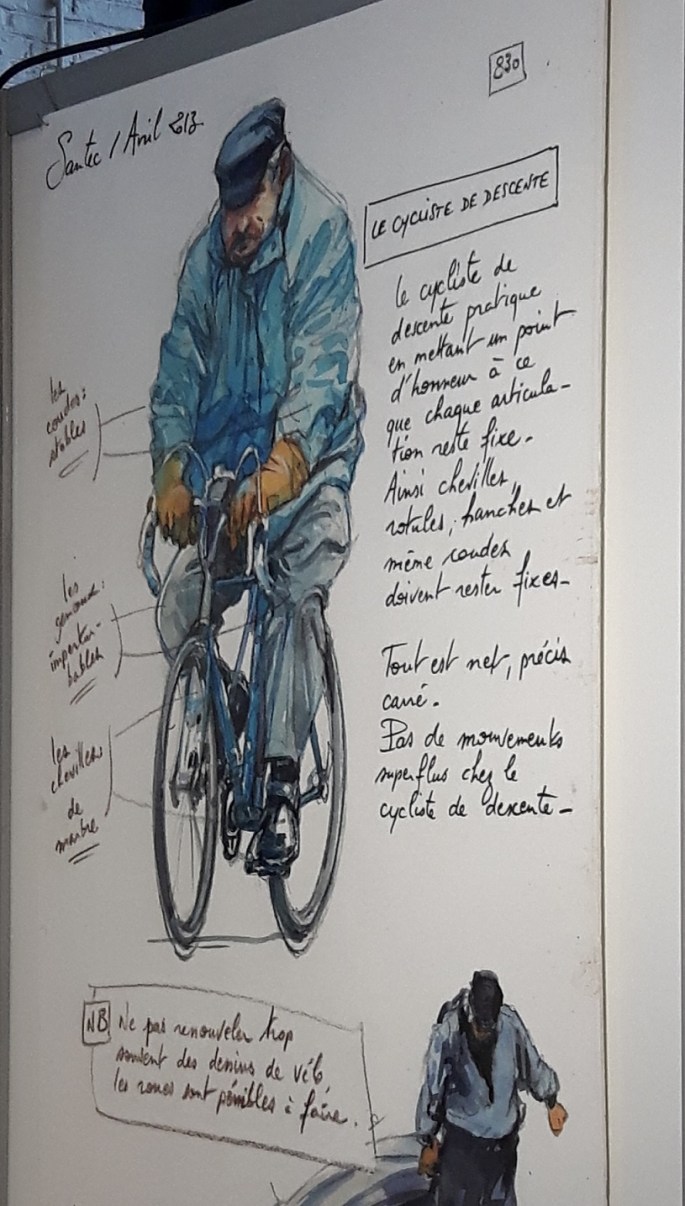 Santec / Avril 213
830
LE CYCLISTE DE DESCENTE
Le cycliste de
descente pratique
en mettant un point
d'honneur à ce
que chaque articula-
tion reste fixe.
Ainsi chevilles,
rotules, hanches et
même coudes
doivent rester fixes-
Tout est net, précis
carré.
Pas de mouvements
superflus chez le
cycliste de descente-
les
coudes:
stables
les
genoux:
impertur-
bables
les
chevilles
de
marbre
NB Ne pas renouveler trop
souvent des dessins de vélo,
les roues sont pénibles à faire.